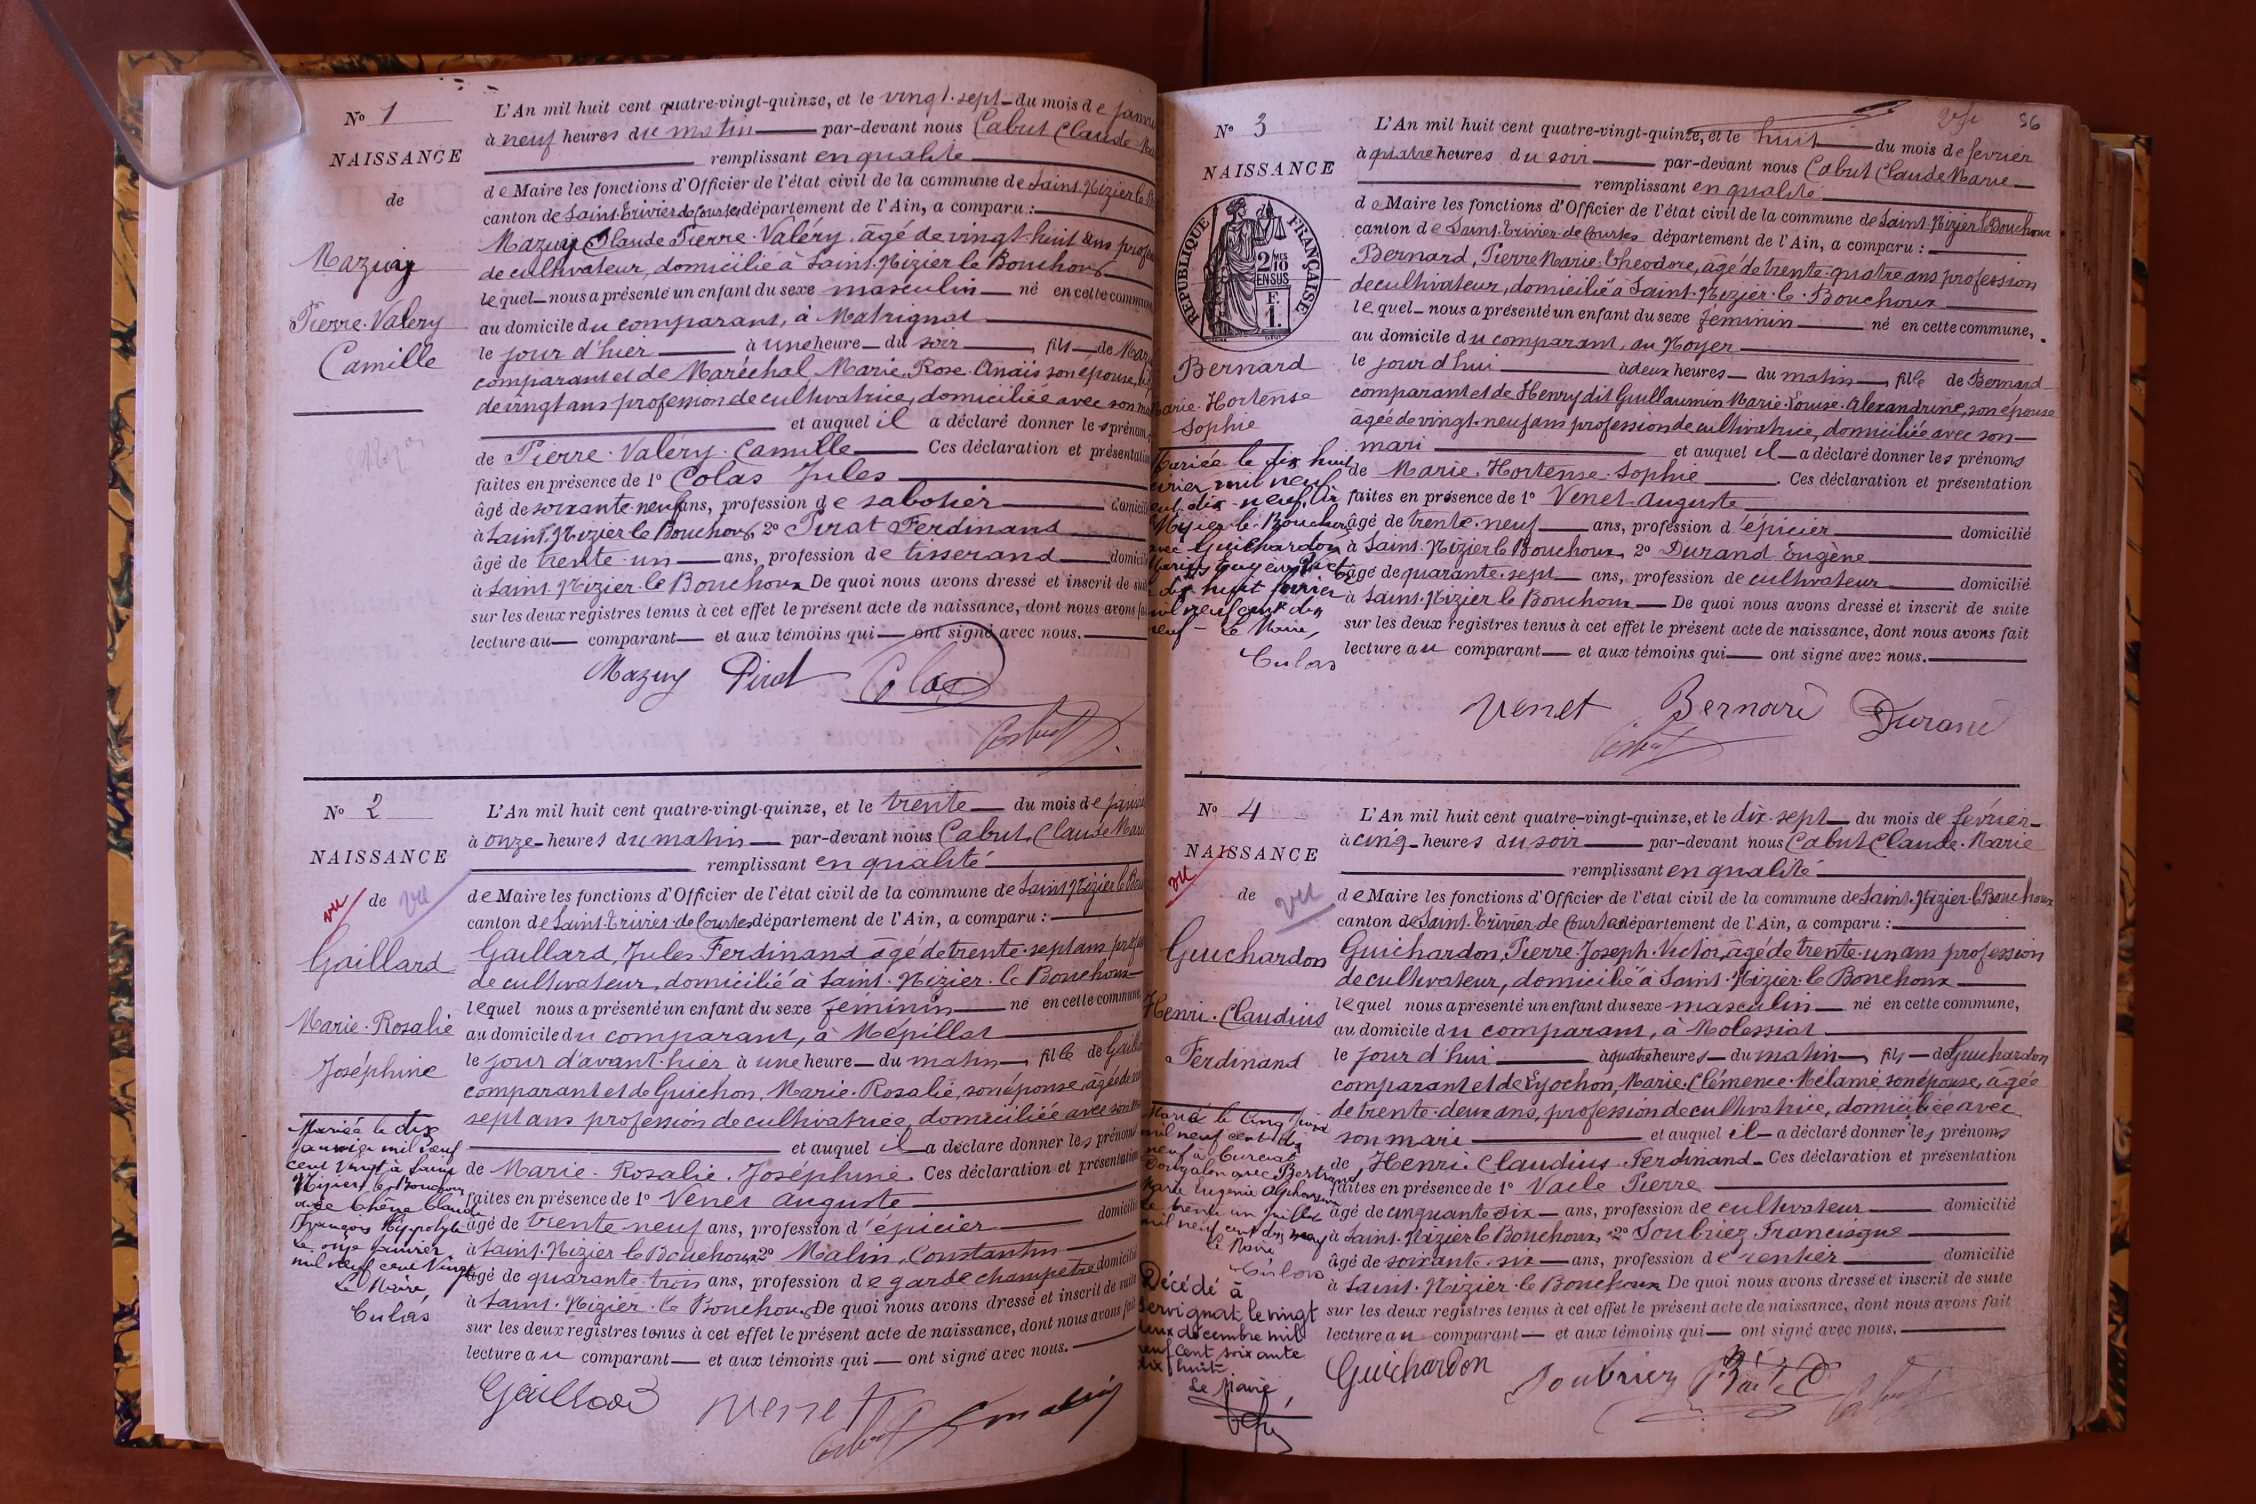 N° 1
NAISSANCE
de
Mazuy
Pierre Valery
Camille
L'An mil huit cent quatre-vingt-quinze, et le vingt-sept du mois de
à neuf heures du matin par-devant nous Cabut Claude
remplissant en qualité
de Maire les fonctions d'Officier de l'état civil de la commune de Saint-Nizier le
canton de Saint-Trivier de Courtes département de l'Ain, a comparu :
Mazuy Claude Pierre Valéry, âgé de vingt-huit ans
de cultivateur, domicilié à Saint-Nizier le Bouchoux
lequel nous a présenté un enfant du sexe masculin né en cette commune
au domicile du comparant, à Matrignat
le jour d'hier à une heure du soir, fils de
comparant et de Maréchal Marie Rose Anaïs son épouse,
de vingt ans profession de cultivatrice, domiciliée avec son
et auquel il a déclaré donner les prénoms
de Pierre Valéry Camille Ces déclaration et présentation
faites en présence de 1° Colas Jules
âgé de soixante-neuf ans, profession de sabotier
à Saint-Nizier le Bouchoux, 2° Pirat Ferdinand
âgé de trente-un ans, profession de tisserand
à Saint-Nizier-le Bouchoux De quoi nous avons dressé et inscrit de
sur les deux registres tenus à cet effet le présent acte de naissance, dont nous avons
lecture au comparant et aux témoins qui ont signé avec nous.
Mazuy Pirat Colas
Cabut
N° 2
NAISSANCE
vu de vu
Gaillard
Marie-Rosalie
Joséphine
Mariée le dix
janvier mil neuf
cent vingt à Saint
Nizier le Bouchoux
avec Chêne Claude
François Hippolyte
Le onze janvier
mil neuf cent vingt
Le Maire,
Culas
L'An mil huit cent quatre-vingt-quinze, et le trente du mois de
à onze heures du matin par-devant nous Cabut Claude
remplissant en qualité
de Maire les fonctions d'Officier de l'état civil de la commune de Saint Nizier le
canton de Saint-Trivier de Courtes département de l'Ain, a comparu :
Gaillard, Jules Ferdinand âgé de trente-sept ans
de cultivateur, domicilié à Saint-Nizier-le Bouchoux
lequel nous a présenté un enfant du sexe féminin né en cette commune
au domicile du comparant, à Mépillat
le jour d'avant-hier à une heure du matin, fille de
comparant et de Guichon, Marie-Rosalie, son épouse, âgée de
sept ans profession de cultivatrice, domiciliée avec son
et auquel il a déclaré donner les prénoms
de Marie-Rosalie-Joséphine. Ces déclaration et présentation
faites en présence de 1° Venet Auguste
âgé de trente neuf ans, profession d'épicier
à Saint-Nizier le Bouchoux 2° Malin, Constantin
âgé de quarante-trois ans, profession de garde champêtre domicilié
à Saint-Nizier-le Bouchoux De quoi nous avons dressé et inscrit de suite
sur les deux registres tenus à cet effet le présent acte de naissance, dont nous avons fait
lecture au comparant et aux témoins qui ont signé avec nous.
Gaillard Venet Cabut Malin
56
N° 3
NAISSANCE
RÉPUBLIQUE FRANÇAISE
2/10
EN SUS
F.
1.
Bernard
Marie-Hortense
Sophie
avec Guichardon
Le Maire,
Culas
L'An mil huit cent quatre-vingt-quinze, et le huit du mois de février
à quatre heures du soir par-devant nous Cabut Claude Marie
remplissant en qualité
de Maire les fonctions d'Officier de l'état civil de la commune de Saint-Nizier le Bouchoux
canton de Saint-Trivier-de Courtes département de l'Ain, a comparu :
Bernard, Pierre Marie Théodore, âgé de trente-quatre ans profession
de cultivateur, domicilié à Saint-Nizier-le-Bouchoux
lequel nous a présenté un enfant du sexe féminin né en cette commune,
au domicile du comparant, au Noyer
le jour d'hui à deux heures du matin, fille de Bernard
comparant et de Henry dit Guillaumin Marie-Louise-Alexandrine, son épouse
âgée de vingt-neuf ans profession de cultivatrice, domiciliée avec son
mari et auquel il a déclaré donner les prénoms
de Marie-Hortense-Sophie Ces déclaration et présentation
faites en présence de 1° Venet Auguste
âgé de trente-neuf ans, profession d'épicier domicilié
à Saint-Nizier le Bouchoux 2° Durand Eugène
âgé de quarante-sept ans, profession de cultivateur domicilié
à Saint-Nizier le Bouchoux De quoi nous avons dressé et inscrit de suite
sur les deux registres tenus à cet effet le présent acte de naissance, dont nous avons fait
lecture au comparant et aux témoins qui ont signé avec nous.
Venet Bernard Durand
Cabut
N° 4
NAISSANCE
vu
de vu
Guichardon
Henri-Claudius
Ferdinand
Marié le cinq
mil neuf cent dix
neuf à Curciat
Dongalon avec Bertrand
Marie Eugénie Alphonsine
Le trente un juillet
mil neuf cent dix neuf
Le Maire
Culas
Décédé à
Servignat le vingt
deux décembre mil
neuf cent soixante
dix huit
Le Maire
L'An mil huit cent quatre-vingt-quinze, et le dix-sept du mois de février
à cinq heures du soir par-devant nous Cabut Claude-Marie
remplissant en qualité
de Maire les fonctions d'Officier de l'état civil de la commune de Saint-Nizier-le Bouchoux
canton de Saint-Trivier de Courtes département de l'Ain, a comparu :
Guichardon, Pierre-Joseph-Victor, âgé de trente-un ans profession
de cultivateur, domicilié à Saint-Nizier-le Bouchoux
lequel nous a présenté un enfant du sexe masculin né en cette commune,
au domicile du comparant, à Molessiat
le jour d'hui à quatre heures du matin, fils de Guichardon
comparant et de Eyochon, Marie-Clémence-Mélanie, son épouse, âgée
de trente-deux ans, profession de cultivatrice, domiciliée avec
son mari et auquel il a déclaré donner les prénoms
de Henri-Claudius-Ferdinand Ces déclaration et présentation
faites en présence de 1° Pierre
âgé de cinquante six ans, profession de cultivateur domicilié
à Saint-Nizier le Bouchoux, 2° Soubriez Francisque
âgé de soixante-six ans, profession de rentier domicilié
à Saint-Nizier-le Bouchoux De quoi nous avons dressé et inscrit de suite
sur les deux registres tenus à cet effet le présent acte de naissance, dont nous avons fait
lecture au comparant et aux témoins qui ont signé avec nous.
Guichardon Soubriez Cabut